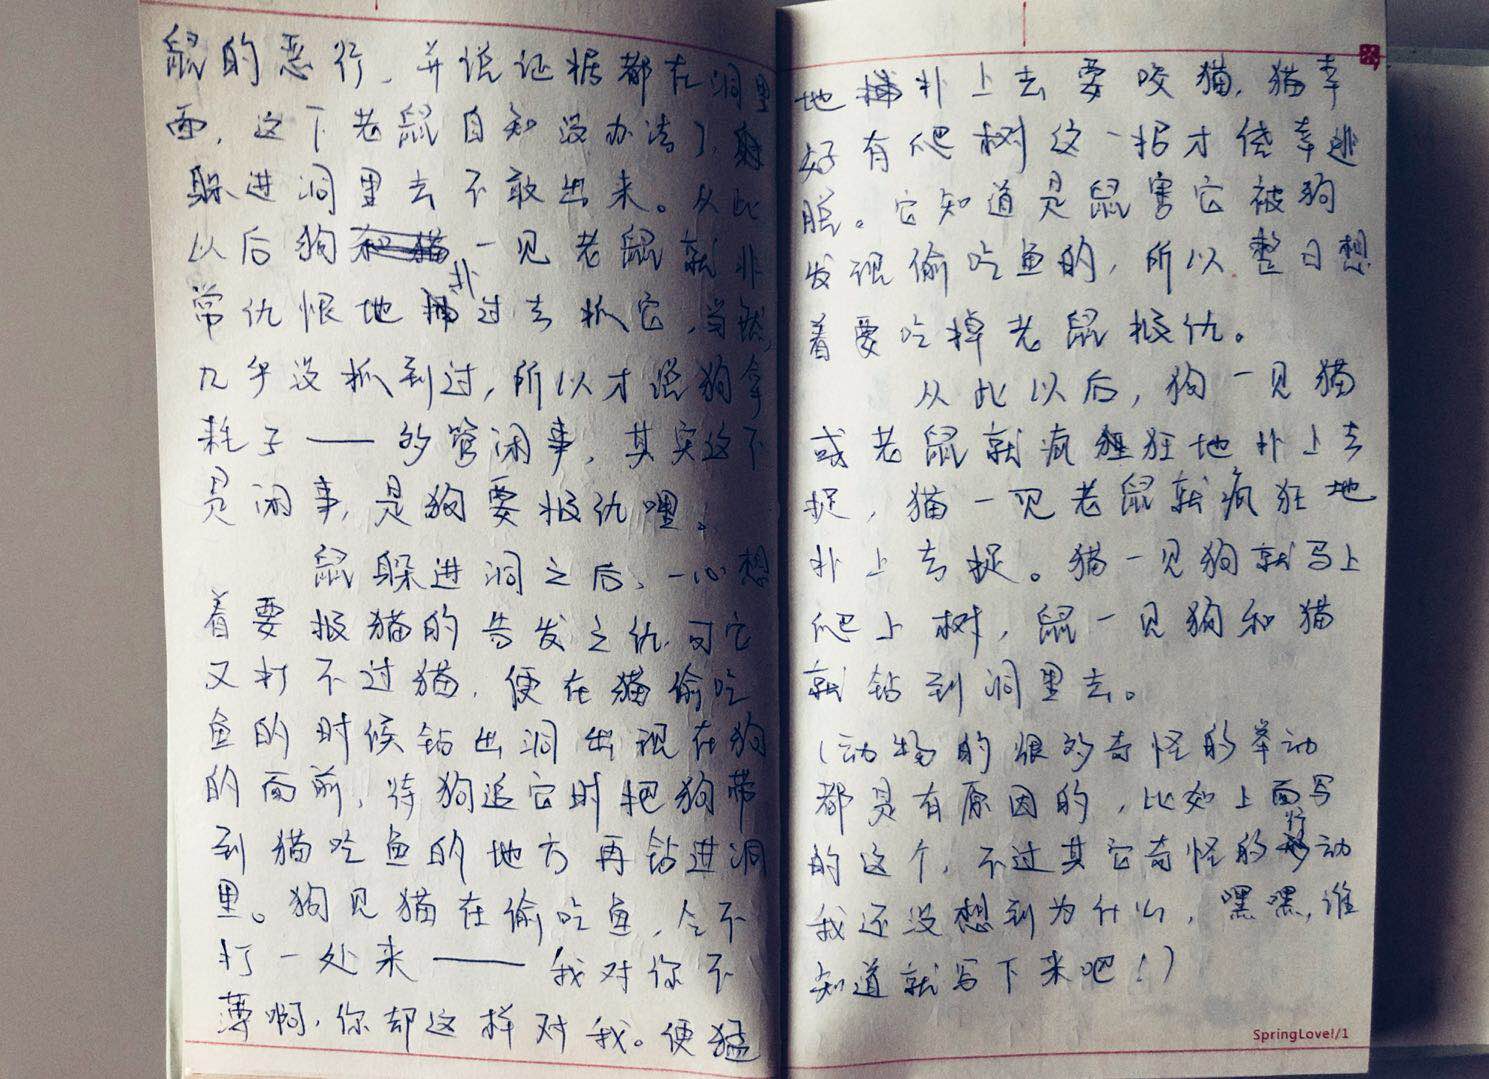 鼠的恶行，并说证据都在洞里
面，这下老鼠自知没办法了，
躲进洞里去不敢出来。从此
以后狗和猫一见老鼠就非
常仇恨地扑过去抓它，当然，
几乎没抓到过，所以才说狗拿
耗子——多管闲事，其实这不
是闲事，是狗要报仇哩。
鼠躲进洞之后、一心想
着要报猫的告发之仇，可它
又打不过猫，便在猫偷吃
鱼的时候钻出洞出现在狗
的面前，待狗追它时把狗带
到猫吃鱼的地方再钻进洞
里。狗见猫在偷吃鱼，仝不
打一处来——我对你不
薄啊，你却这样对我。便猛
地扑上去要咬猫，猫幸
好有爬树这一招才侥幸逃
脱。它知道是鼠害它被狗
发现偷吃鱼的，所以整日想
着要吃掉老鼠报仇。
从此以后，狗一见猫
或老鼠就疯狂地扑上去
捉，猫一见老鼠就疯狂地
扑上去捉。猫一见狗就马上
爬上树，鼠一见狗和猫
就钻到洞里去。
（动物的很多奇怪的举动
都是有原因的，比如上面写
的这个，不过其它奇怪的行动
我还没想到为什么，嘿嘿，谁
知道就写下来吧！）
SpringLove!/1